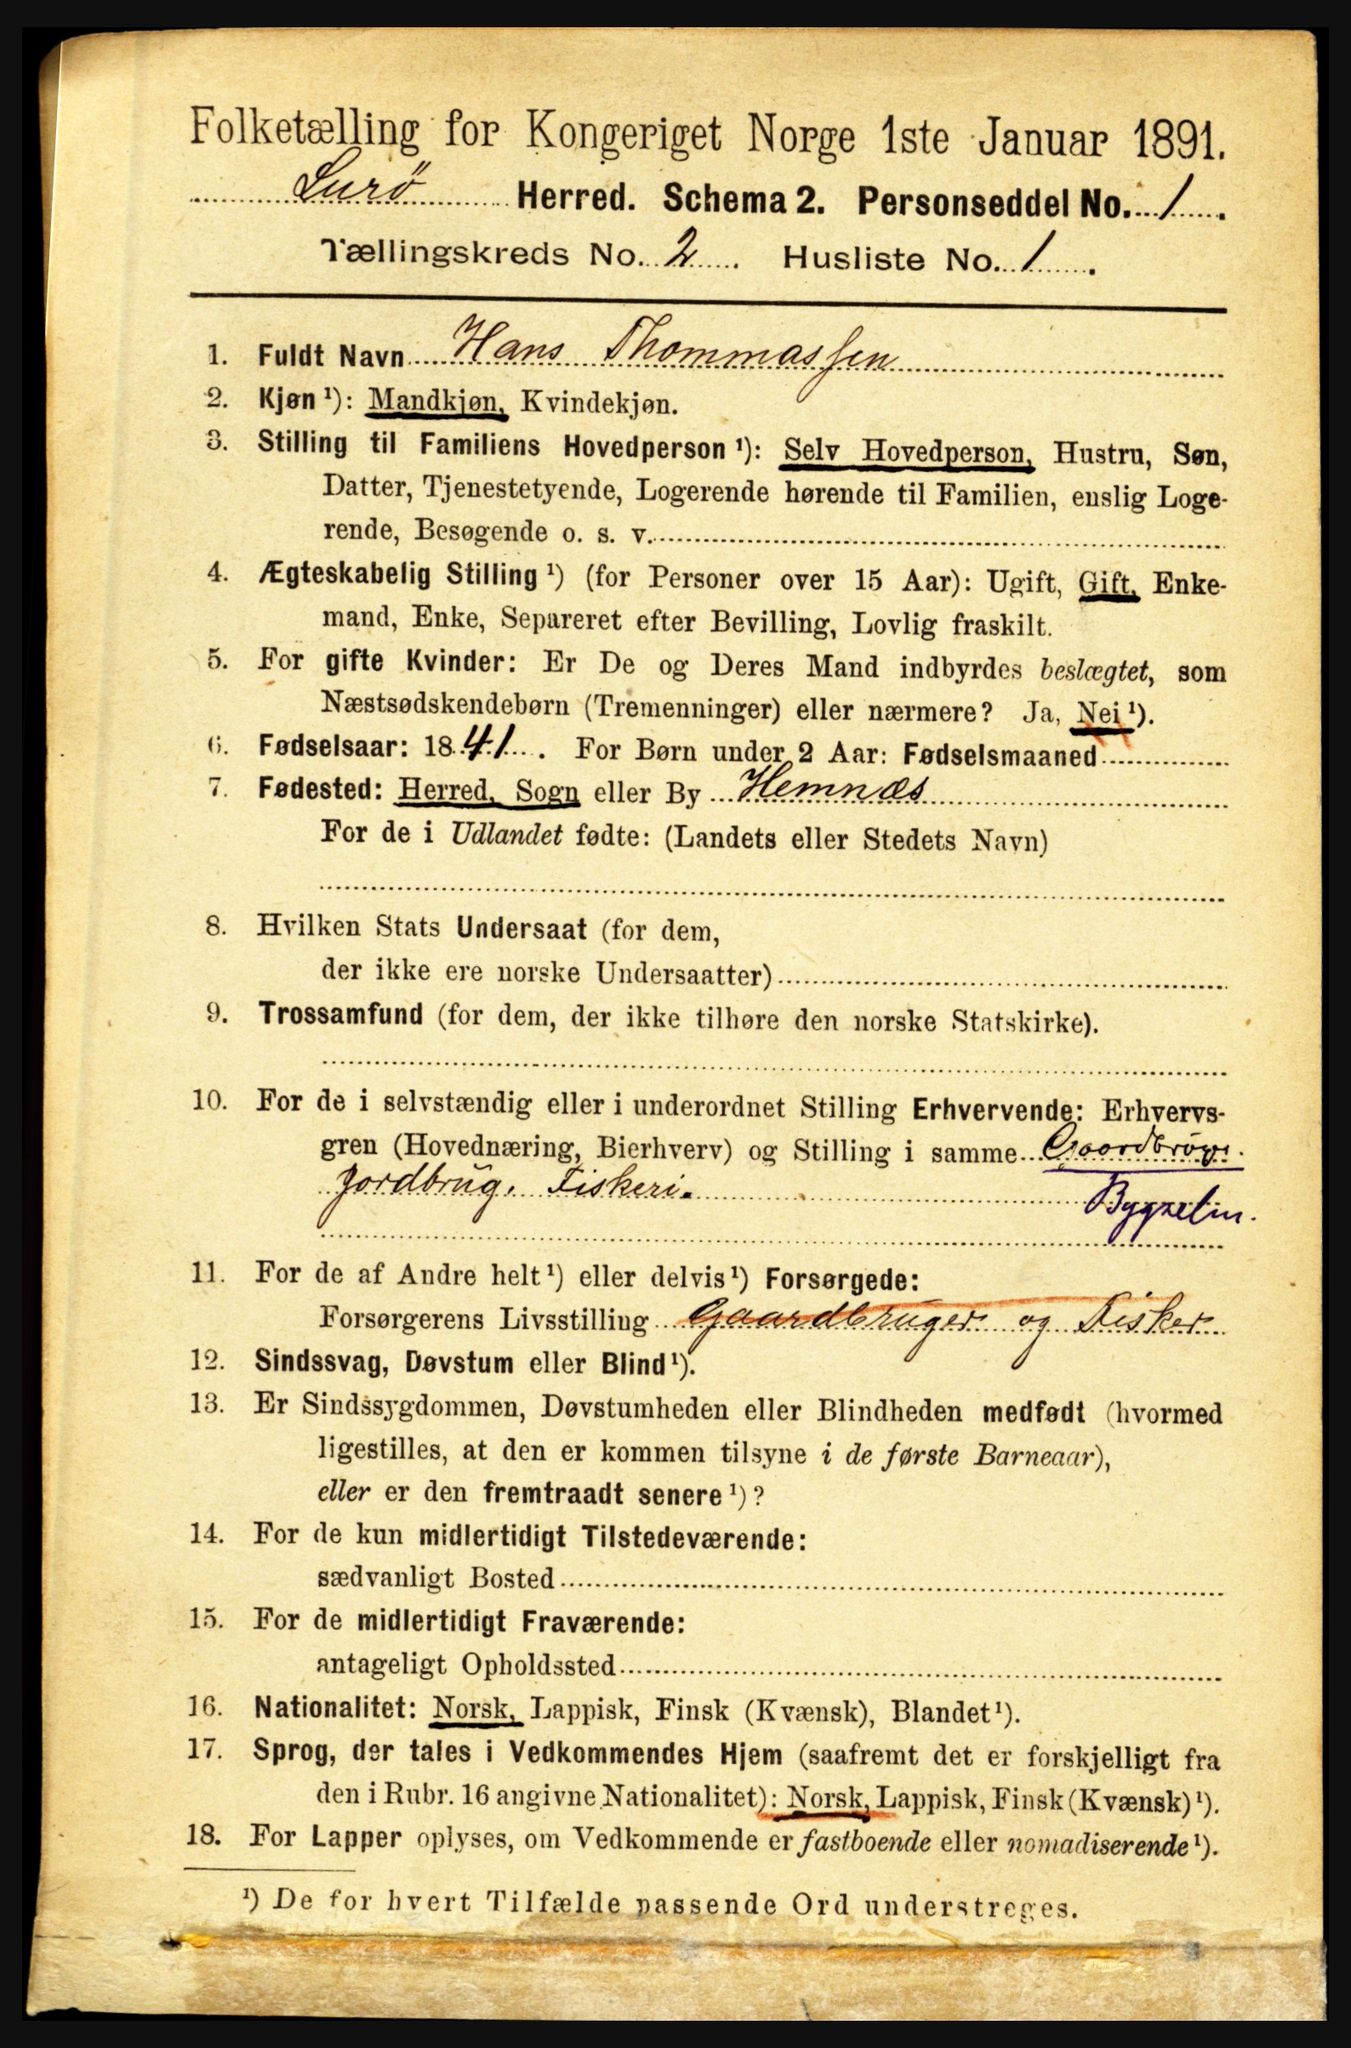 Folketælling for Kongeriget Norge 1ste Januar 1891.
Lurø Herred. Schema 2. Personseddel No. 1.
Tællingskreds No. 2. Husliste No. 1.
1. Fuldt Navn Hans Thommassen
2. Kjøn ¹): Mandkjøn, Kvindekjøn.
3. Stilling til Familiens Hovedperson ¹): Selv Hovedperson, Hustru, Søn,
Datter, Tjenestetyende, Logerende hørende til Familien, enslig Loge-
rende, Besøgende o. s. v.
4. Ægteskabelig Stilling ¹) (for Personer over 15 Aar): Ugift, Gift, Enke-
mand, Enke, Separeret efter Bevilling, Lovlig fraskilt.
5. For gifte Kvinder: Er De og Deres Mand indbyrdes beslægtet, som
Næstsødskendebørn (Tremenninger) eller nærmere? Ja, Nei ¹).
6. Fødselsaar: 1841. For Børn under 2 Aar: Fødselsmaaned
7. Fødested: Herred, Sogn eller By Hemnæs
For de i Udlandet fødte: (Landets eller Stedets Navn)
8. Hvilken Stats Undersaat (for dem,
der ikke ere norske Undersaatter)
9. Trossamfund (for dem, der ikke tilhøre den norske Statskirke).
10. For de i selvstændig eller i underordnet Stilling Erhvervende: Erhvervs-
gren (Hovednæring, Bierhverv) og Stilling i samme
Jordbrug. Fiskeri.
11. For de af Andre helt ¹) eller delvis ¹) Forsørgede:
Forsørgerens Livsstilling Gaardbruger og Fisker
12. Sindssvag, Døvstum eller Blind ¹).
13. Er Sindssygdommen, Døvstumheden eller Blindheden medfødt (hvormed
ligestilles, at den er kommen tilsyne i de første Barneaar),
eller er den fremtraadt senere ¹)?
14. For de kun midlertidigt Tilstedeværende:
sædvanligt Bosted
15. For de midlertidigt Fraværende:
antageligt Opholdssted
16. Nationalitet: Norsk, Lappisk, Finsk (Kvænsk), Blandet ¹).
17. Sprog, der tales i Vedkommendes Hjem (saafremt det er forskjelligt fra
den i Rubr. 16 angivne Nationalitet): Norsk, Lappisk, Finsk (Kvænsk) ¹).
18. For Lapper oplyses, om Vedkommende er fastboende eller nomadiserende ¹).
¹) De for hvert Tilfælde passende Ord understreges.